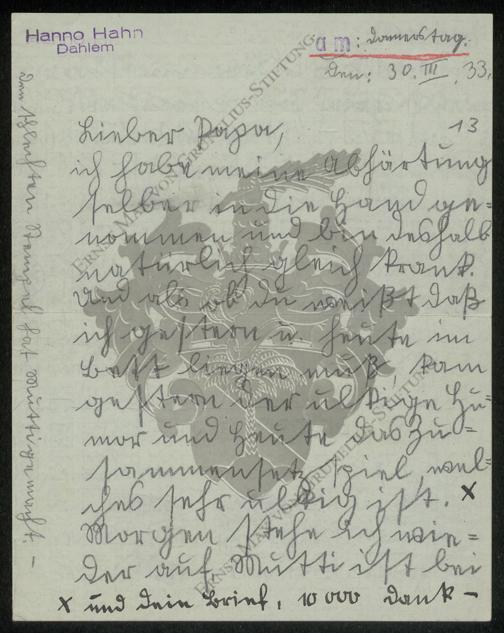 Hanno Hahn
Dahlem
am: Donnerstag.
Den: 30. III. 33.
13
Lieber Papa,
ich habe meine Abhärtung
selber in die Hand ge-
nommen und bin deshalb
natürlich gleich krank.
Und als ob du weißt daß
ich gestern u. heute im
Bett liegen muß kam
gestern der ulkige Hu=
mor und heute das Zu=
sammensetz spiel, wel=
ches sehr ulkig ist. x
Morgen stehe ich wie=
der auf. Mutti ist bei
x und dein Brief, 10 000 dank –
den Stempel hat Mutti gemacht. –
ERNST MAX VON GRUNELIUS-STIFTUNG
ERNST MAX VON GRUNELIUS-STIFTUNG